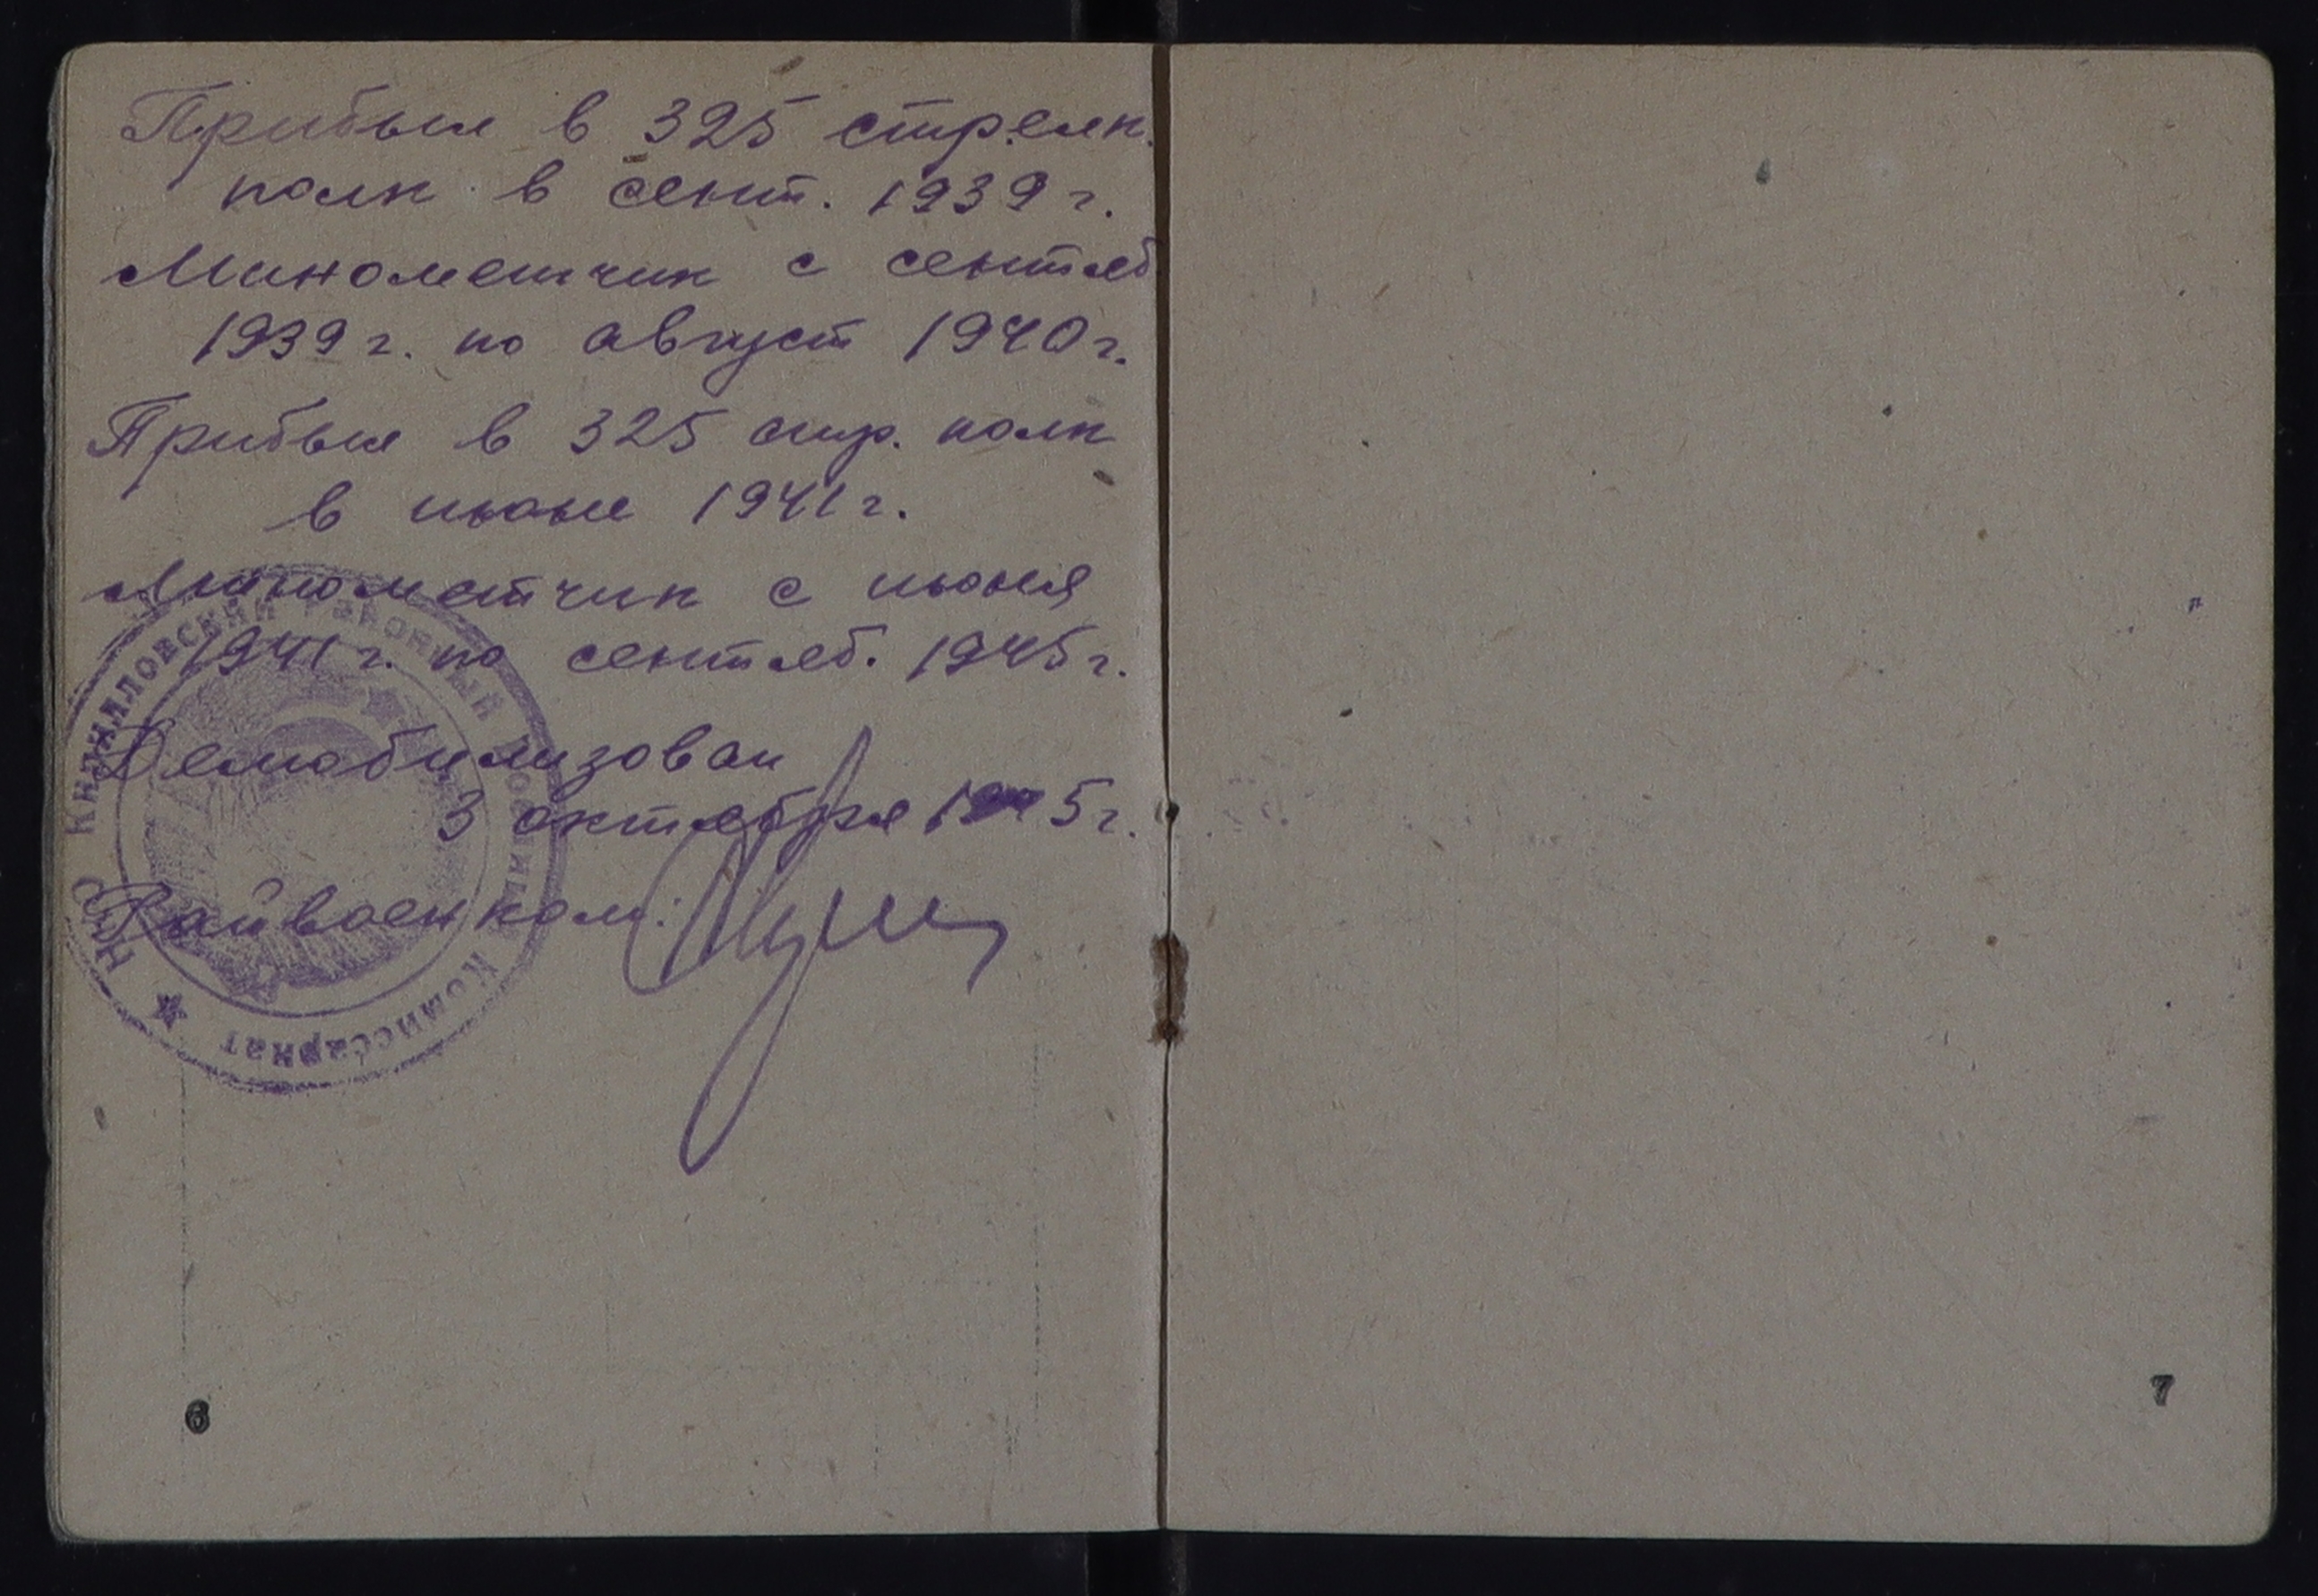 Прибыл в 325 стрелк.
полк в сент. 1939 г.
Минометчик с сентяб
1939 г. по август 1940 г.
Прибыл в 325 стр. полк
в июне 1941 г.
Минометчик с июня
1941 г. по сентяб. 1945 г.
Демобилизован
3 октября 1945 г.
Райвоенком:
НКО Кирилловский Районный Военный Комиссариат
6
7